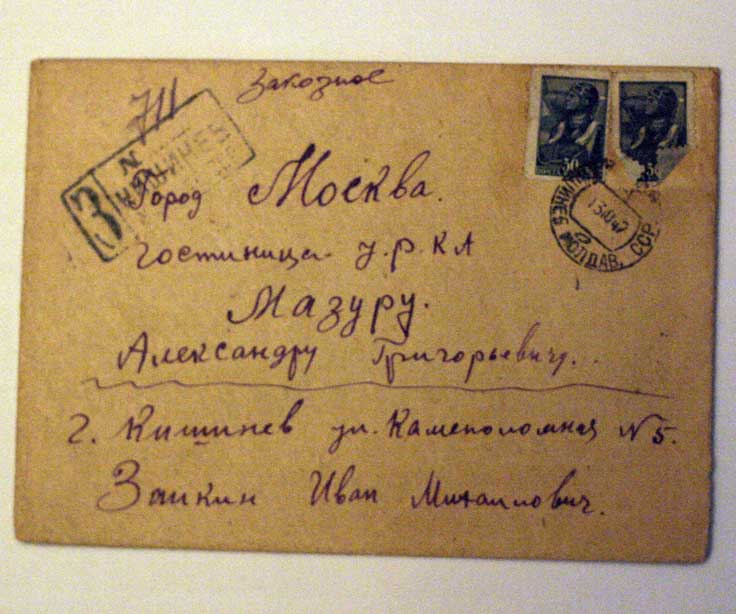 Заказное
711
З
N
КИШИНЕВ
Город Москва.
гостиница у.р.КА
Мазуру.
Александру Григорьевичу.
г. Кишинев ул. Каменоломная N 5.
Заикин Иван Михайлович.
ПОЧТА 50
КИШИНЕВ МОЛДАВ. ССР